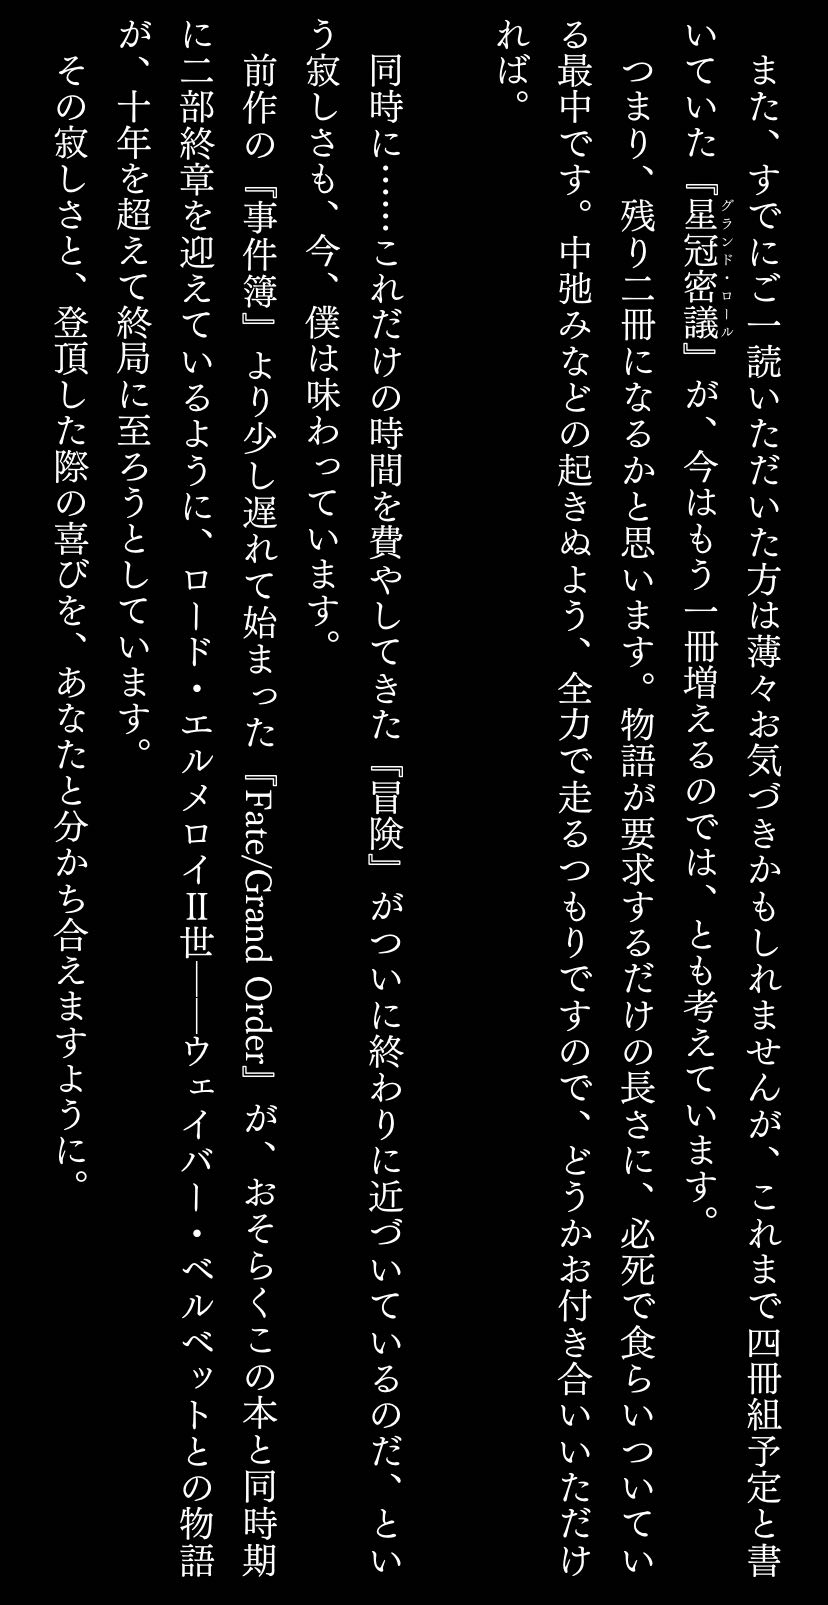 また、すでにご一読いただいた方は薄々お気づきかもしれませんが、これまで四冊組予定と書
いていた『星冠密議』が、今はもう一冊増えるのでは、とも考えています。
グランド・ロール
つまり、残り二冊になるかと思います。物語が要求するだけの長さに、必死で食らいついてい
る最中です。中弛みなどの起きぬよう、全力で走るつもりですので、どうかお付き合いいただけ
れば。
同時に……これだけの時間を費やしてきた『冒険』がついに終わりに近づいているのだ、とい
う寂しさも、今、僕は味わっています。
前作の『事件簿』より少し遅れて始まった『Fate/Grand Order』が、おそらくこの本と同時期
に二部終章を迎えているように、ロード・エルメロイⅡ世――ウェイバー・ベルベットとの物語
が、十年を超えて終局に至ろうとしています。
その寂しさと、登頂した際の喜びを、あなたと分かち合えますように。